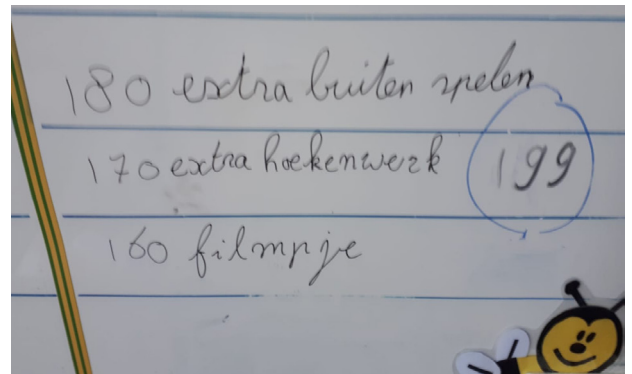 180 extra buiten spelen
170 extra hoekenwerk 199
160 filmpje